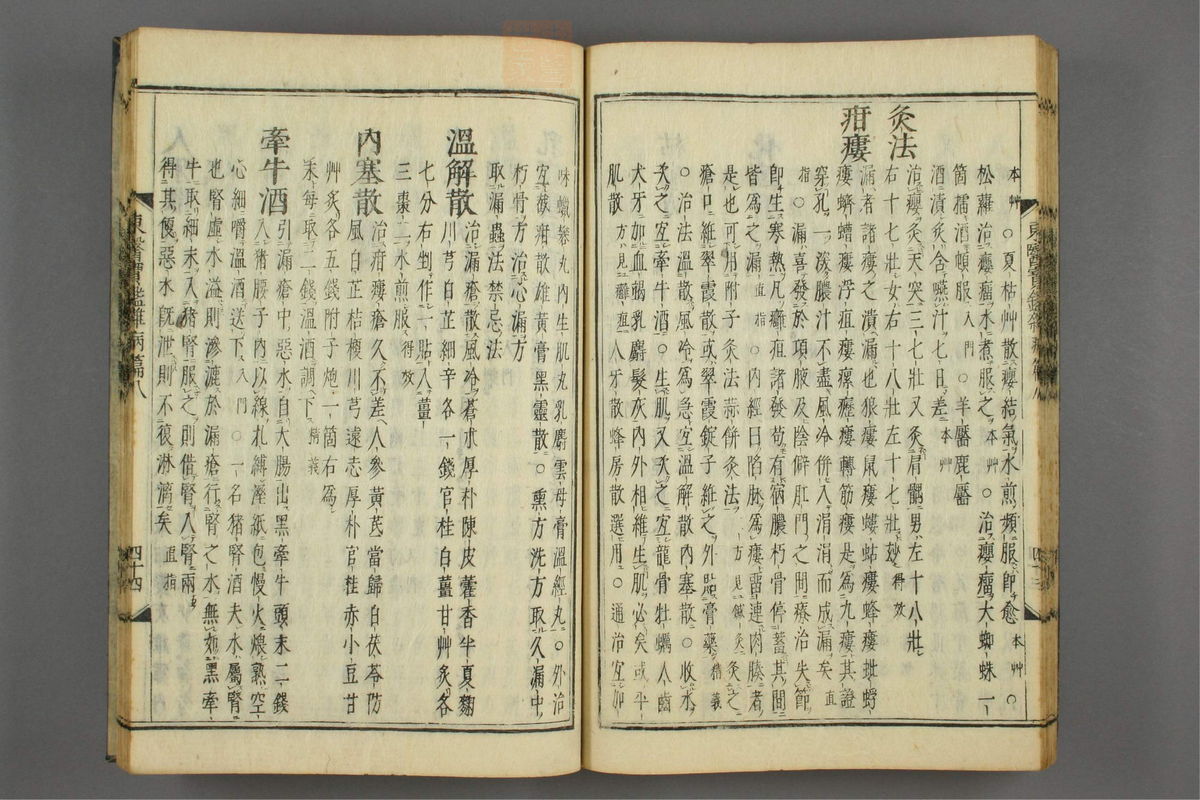 本艸○夏枯艸散癭結氣水煎頻服卽愈本艸○
松蘿治癭瘤水煮服之本艸○治癭瘤大蜘蛛一
箇擂酒頓服入門○羊靨鹿靨
酒漬炙含嚥汁七日差本艸
灸法
治癭灸天突三七壯又灸肩髃男左十八壯
右十七壯女右十八壯左十七壯玅得效
疳瘻
漏者諸瘻之潰漏也狼瘻鼠瘻螻蛄瘻蜂瘻蚍蜉
瘻蠐螬瘻浮疽瘻瘰癧瘻轉筋瘻是爲九瘻其證
穿孔一深膿汁不盡風冷併入涓涓而成漏矣直
指○漏喜發於項腋及陰僻肛門之間療治失節
卽生寒熱凡癰疽諸發苟有宿膿朽骨停蓄其間
皆爲之漏直指○內經曰陷脉爲瘻留連肉腠者
是也可用附子灸法蒜餠灸法方見鍼灸灸之
瘡口維翠霞散或翠霞錠子維之外貼膏藥精義
○治法溫散風冷爲急宜溫解散內塞散○收水
次之宜牽牛酒○生肌又次之宜龍骨牡蠣人齒
犬牙血䪿乳麝髮灰內外相維生肌必矣或平
肌散方見癰疽人牙散蜂房散選用○通治宜加
味蠟礬丸內生肌丸乳麝雲母膏溫經丸○外治
宜蔽疳散雄黃膏黑靈散○熏方洗方取久漏中
朽骨方治心漏方
取漏蟲法禁忌法
溫解散
治漏瘡散風冷蒼朮厚朴陳皮藿香半夏麴
川芎白芷細辛各一錢官桂白薑甘艸炙各
七分右剉作一貼入薑
三棗二水煎服得效
內塞散
治疳瘻瘡久不差人參黃芪當歸白茯苓防
風白芷桔梗川芎遠志厚朴官桂赤小豆甘
艸炙各五錢附子炮一箇右爲
末每取二錢溫酒調下精義
牽牛酒
引漏瘡中惡水自大腸出黑牽牛頭末二錢
入猪腰子內以線札縛溼紙包慢火煨熟空
心細嚼溫酒送下入門○一名猪腎酒夫水屬腎
也腎虛水溢則滲漉於漏瘡行腎之水無如黑牽
牛取細末入猪腎服之則借腎入腎兩
得其便惡水旣泄則不復淋漓矣直指
東醫寶鑑雜病篇八
四十四